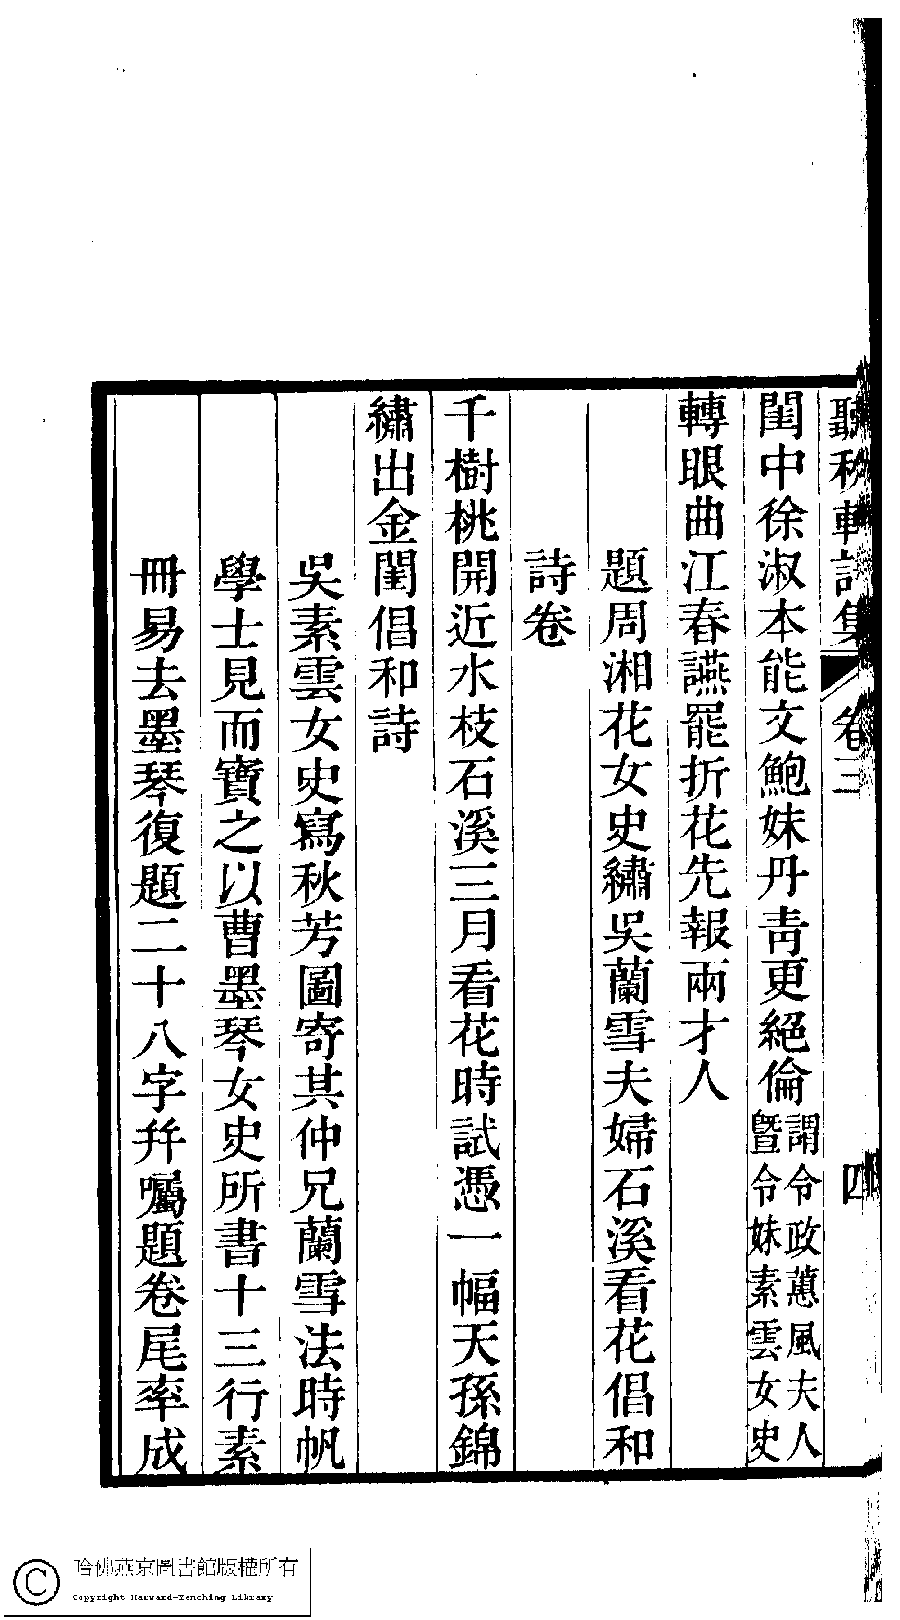 聽秋軒詩集 卷三 四
閨中徐淑本能文鮑妹丹青更絕倫謂令政蕙風夫人
暨令妹素雲女史
轉眼曲江春讌罷折花先報兩才人
題周湘花女史繡吳蘭雪夫婦石溪看花倡和
詩卷
千樹桃開近水枝石溪三月看花時試憑一幅天孫錦
繡出金閨倡和詩
吳素雲女史寫秋芳圖寄其仲兄蘭雪法時帆
學士見而寶之以曹墨琴女史所書十三行素
冊易去墨琴復題二十八字幷囑題卷尾率成
哈佛燕京圖書館版權所有
Copyright Harvard-Yenching Library